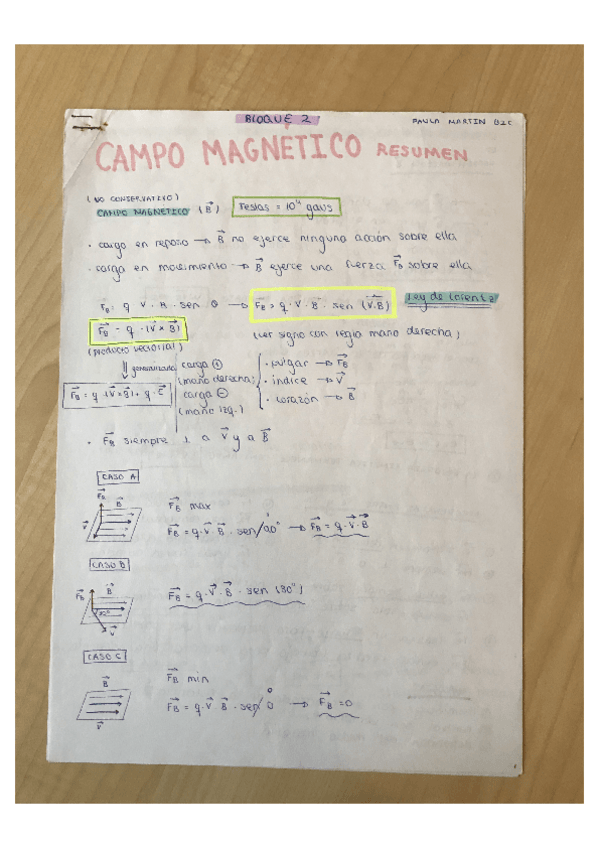 BLOQUE 2
PAULA MARTIN B2C
CAMPO MAGNÉTICO RESUMEN
(NO CONSERVATIVO)
CAMPO MAGNETICO (B⃗)
Teslas = 10⁴ gaus
· carga en reposo → B⃗ no ejerce ninguna acción sobre ella
· carga en movimiento → B⃗ ejerce una fuerza F⃗B sobre ella
FB: q V B · sen θ → F⃗B = q · V · B · sen (V⃗·B⃗)
Ley de Lorentz
F⃗B = q · (V⃗ × B⃗)
(ver signo con regla mano derecha)
(producto vectorial)
⇓ generalizada
F⃗B = q · (V⃗ × B⃗) + q · E⃗
carga ⊕
(mano derecha)
carga ⊖
(mano izq.)
· pulgar → F⃗B
· índice → V⃗
· corazón → B⃗
· F⃗B siempre ⊥ a V⃗ y a B⃗
CASO A
F⃗B B⃗
V⃗
F⃗B max
F⃗B = q · V⃗ · B⃗ · sen 90° → F⃗B = q · V⃗ · B⃗
CASO B
F⃗B B⃗
30°
V⃗
F⃗B = q · V⃗ · B⃗ · sen (30°)
CASO C
B⃗
V⃗
F⃗B min
F⃗B = q · V⃗ · B⃗ · sen 0 → F⃗B = 0